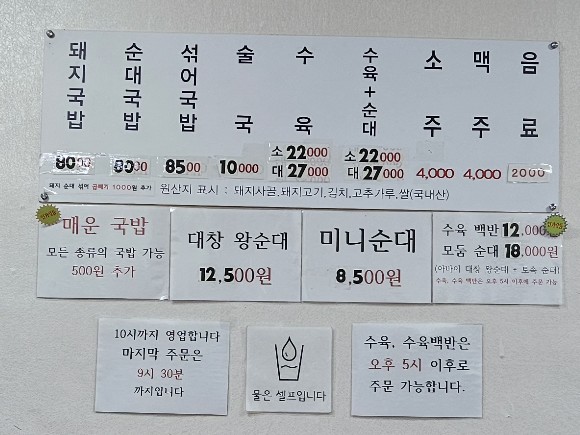 돼지국밥 순대국밥 섞어국밥 술국 수육 수육+순대 소주 맥주 음료
8000 8000 8500 10000 소 22000 대 27000 소 22000 대 27000 4,000 4,000 2000
돼지 순대 섞어 곱빼기 1000원 추가 원산지 표시 : 돼지사골,돼지고기,김치,고추가루,쌀(국내산)
매운 국밥
모든 종류의 국밥 가능
500원 추가
대창 왕순대
12,500원
미니순대
8,500원
수육 백반 12,000원
모둠 순대 18,000원
(아바이 대창 왕순대 + 토속 순대)
수육, 수육 백반은 오후 5시 이후에 주문 가능
10시까지 영업합니다
마지막 주문은
9시 30분
까지입니다
물은 셀프입니다
수육, 수육백반은
오후 5시 이후로
주문 가능합니다.